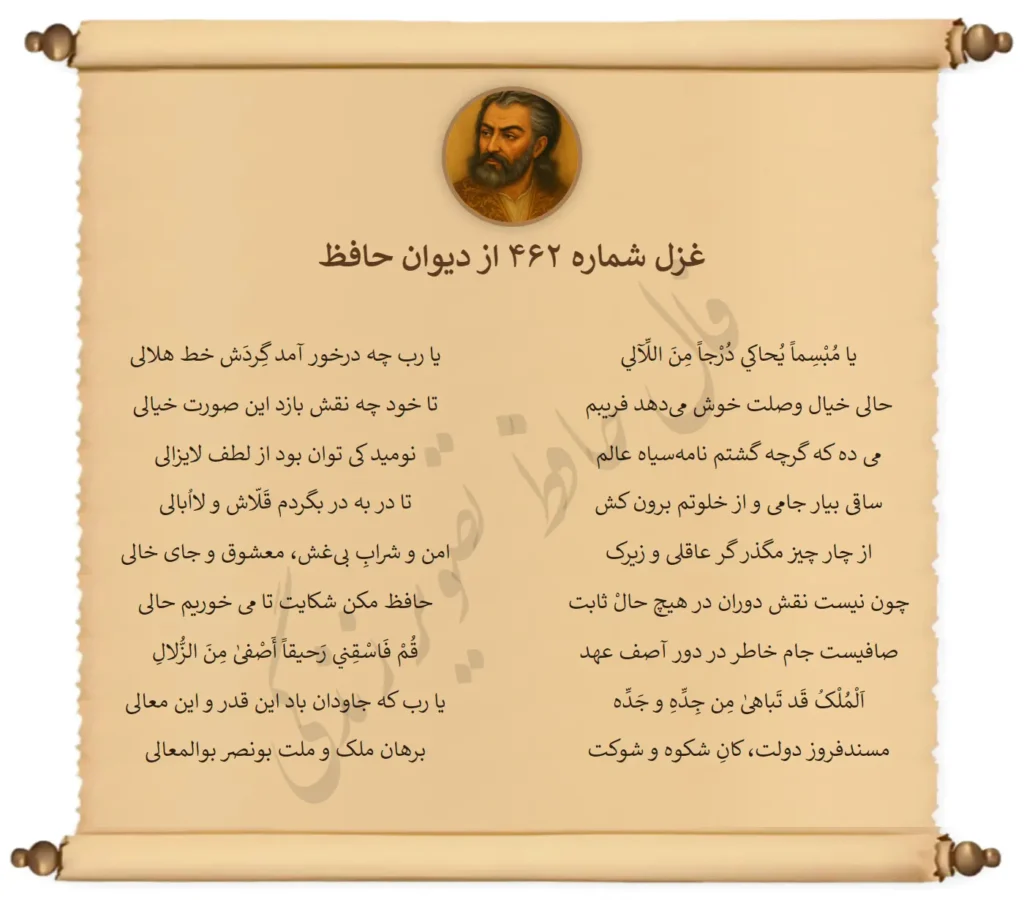 غزل شماره ۴۶۲ از دیوان حافظ
یا مُبْسِماً یُحاکي دُرْجاً مِنَ اللِّآلي یا رب چه درخور آمد گِردَش خط هلالی
حالی خیال وصلت خوش می‌دهد فریبم تا خود چه نقش بازد این صورت خیالی
می ده که گرچه گشتم نامه‌سیاه عالم نومید کی توان بود از لطف لایزالی
ساقی بیار جامی و از خلوتم برون کش تا در به در بگردم قَلّاش و لااُبالی
از چار چیز مگذر گر عاقلی و زیرک امن و شرابِ بی‌غش، معشوق و جای خالی
چون نیست نقش دوران در هیچ حالْ ثابت حافظ مکن شکایت تا می خوریم حالی
صافیست جام خاطر در دور آصف عهد قُمْ فَاسْقِنِي رَحیقاً أَصْفیٰ مِنَ الزُّلالِ
اَلْمُلْکُ قَد تَباهیٰ مِن جِدِّهِ و جَدِّه یا رب که جاودان باد این قدر و این معالی
مسندفروز دولت، کانِ شکوه و شوکت برهان ملک و ملت بونصر بوالمعالی
فال حافظ تصویر زندگی